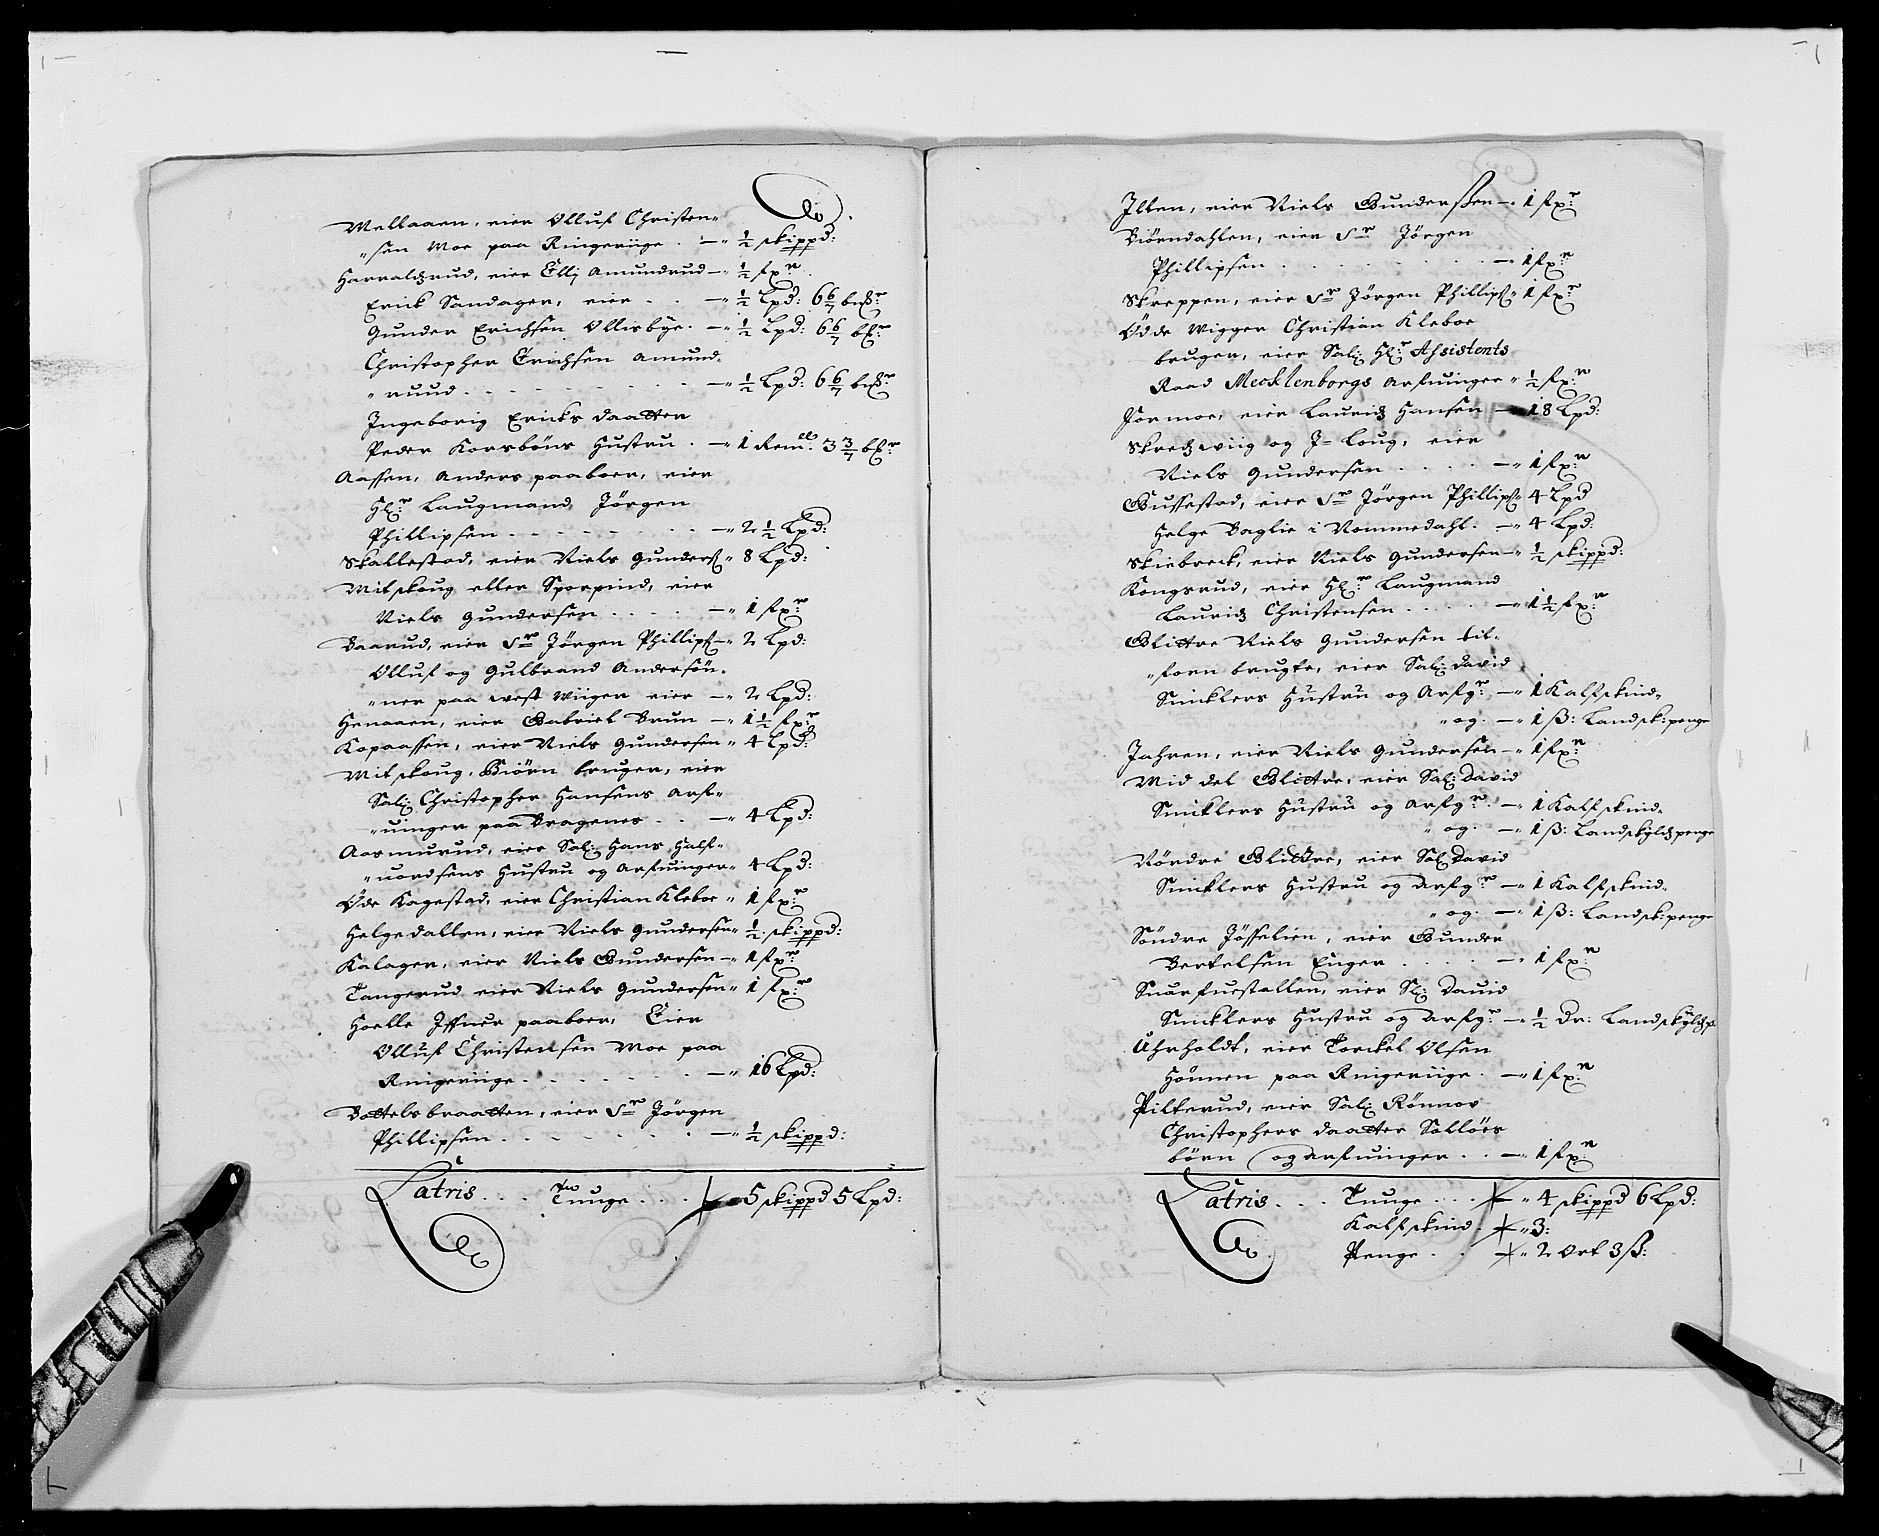 Mellaaen, eier Olluf Christen-
"sen Moe paa Ringeriige. — " ½ skippd:
Harraldzrud, eier Elli Amundrud — " ½ fxr
Erick Sandager, eier . . — " ½ Lpd: 6 6/7 bxr
Gunder Erichsen Ollisbye. — " ½ Lpd: 6 6/7 bxr
Christopher Erichsen Amund-
"ruud . . . . — " ½ Lpd: 6 6/7 bxr
Ingeborig Ericks daatter
Peder Korsböns Hustru . — " 1 Remll. 3 3/7 bxr
Aassen, Anders paaboer, eier
Hr: Laugmand Jörgen
Phillipsen . . . . — " 2 ½ Lpd:
Skallestad, eier Niels Gunders: " 8 Lpd:
Mitskoug eller Sporpind, eier
Niels Gundersen . . . . — " 1 fxr
Baarud, eier Sr Jörgen Phillips: — " 2 Lpd:
Olluf og Gulbrand Andersön-
"ner paa west Wiiger eier — " 2 Lpd:
Henaaen, eier Gabriel Brun — " 1 ½ fxr
Kopaassen, eier Niels Gundersen " 4 Lpd:
Mitskoug, Biörn bruger, eier
Sal: Christopher Hansens Arf-
"uinger paa Bragenes . . — " 4 Lpd:
Aasmurud, eier Sal: Hans Half-
"uordsens Hustru og Arfuinger " 4 Lpd:
Öde Kagestad, eier Christian Kleboe " 1 fxr
Helgedallen, eier Niels Gundersen " ½ skippd:
Kalager, eier Niels Gundersen — " 1 fxr
Tangerud eier Niels Gundersen " 1 fxr
Hoelle Iffuer paaboer, Eier
Olluf Christensen Moe paa
Ringeriige . . . . — " 16 Lpd:
Bottelsbraatten, eier Sr Jörgen
Phillipsen . . . . — " ½ skippd:
Latris . . . Tunge . . . 5 skippd 5 Lpd:
Illen, eier Niels Gunderssen — " 1 fxr
Biörndahlen, eier Sr Jörgen
Phillipsen . . . . — " 1 fxr
Skreppen, eier Sr Jörgen Phillips: " 1 fxr
Ödde Wigger Christian Kleboe
bruger, eier Sal: Hr: Assistents
Raad Mecklenborgs Arfuinger " ½ fxr
Formoe, eier Lauridz Hansen — 18 Lpd:
Skredzwiig og I= Loug, eier
Niels Gundersen . . . . — " 1 fxr
Gussestad, eier Sr Jörgen Phillips: " 4 Lpd
Helge Baglie i Nommedahl. — " 4 Lpd:
Skiebreck, eier Niels Gundersen — " ½ skippd:
Kongsrud, eier Hr: Laugmand
Lauridz Christensen . . . . — " 1 ½ fxr
Glittre Niels Gundersen til-
"forn brugte, eier Sal: David
Sincklers Hustru og Arfgr: — " 1 Kalfskind-
" og. — " 1 ß: Landsk:penge
Jahren, eier Niels Gundersen — " 1 fxr
Mid del Glittre, eier Sal: David
Sincklers Hustru og Arfgr: — " 1 Kalfskind-
" og. — " 1 ß: Landskyldzpenge
Nördre Glittre, eier Sal: David
Sincklers Hustru og Arfgr: — " 1 Kalfskind-
" og. — " 1 ß: Landsk:penge
Söndre Jösselien, eier Gunder
Bertelsen Enger . . . . — " 1 fxr
Snarfuestallen, eier Sl: Dauid
Sincklers Hustru og Arfgr: — " ½ Dr: Landskyldzp:
Uhrholdt, eier Torckel Olsen
Hönnen paa Ringeriige . — " 1 fxr
Pilterud, eier Sal: Rönnov
Christophers daatter Solløes
börn og Arfuinger . . — " 1 fxr
Latris . . . Tunge . . . " 4 skippd 6 Lpd:
Kalfskind . " 3:
Penge . . " 2 Ort 3 ß: